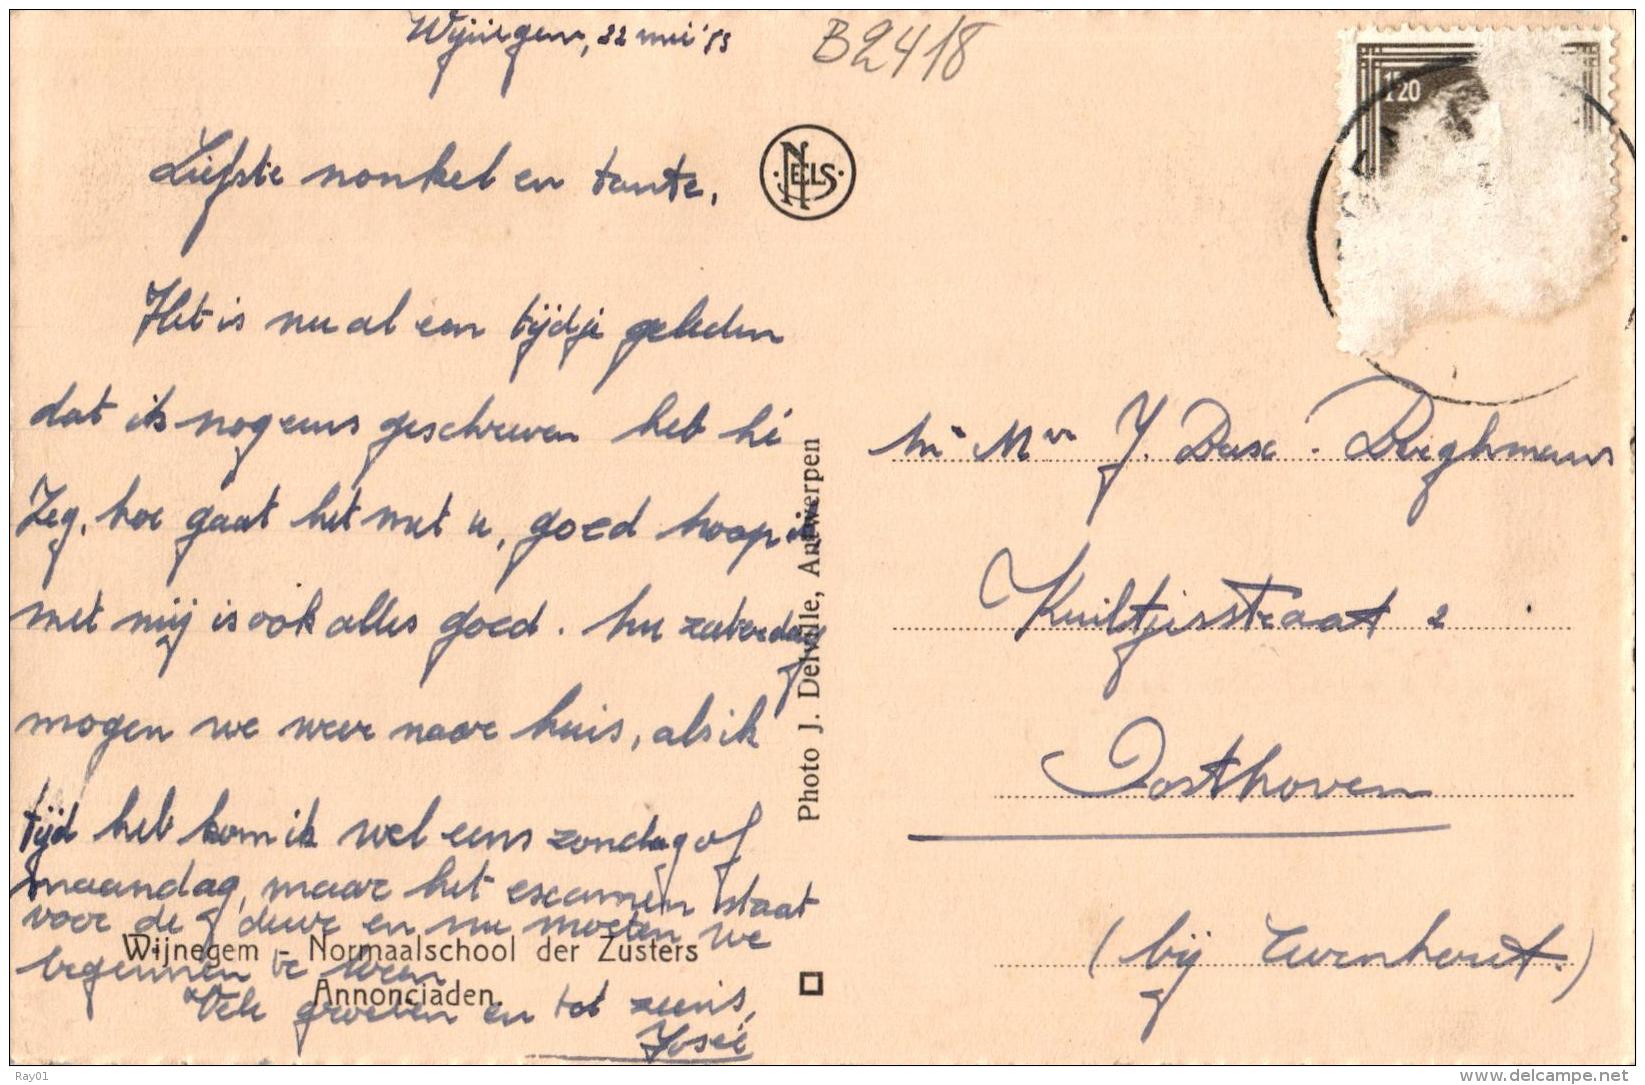 Wijnegem, 22 mei '53
B2418
1F20
NELS
Liefste nonkel en tante,
Het is nu al een tijdje geleden
dat ik nog eens geschreven heb hé
Zeg, hoe gaat het met u, goed hoop ik
met mij is ook alles goed. Nu zaterdag
mogen we weer naar huis, als ik
tijd heb kom ik wel eens zondag of
maandag, maar het examen staat
voor de deur en nu moeten we
beginnen te leren
Vele groeten en tot ziens,
José
Wijnegem - Normaalschool der Zusters
Annonciaden.
Photo J. Delville, Antwerpen
Mr Mvr J. Dierghmans
Kuiltjesstraat 2
Oosthoven
(bij Turnhout.)
Ray01
www.delcampe.net